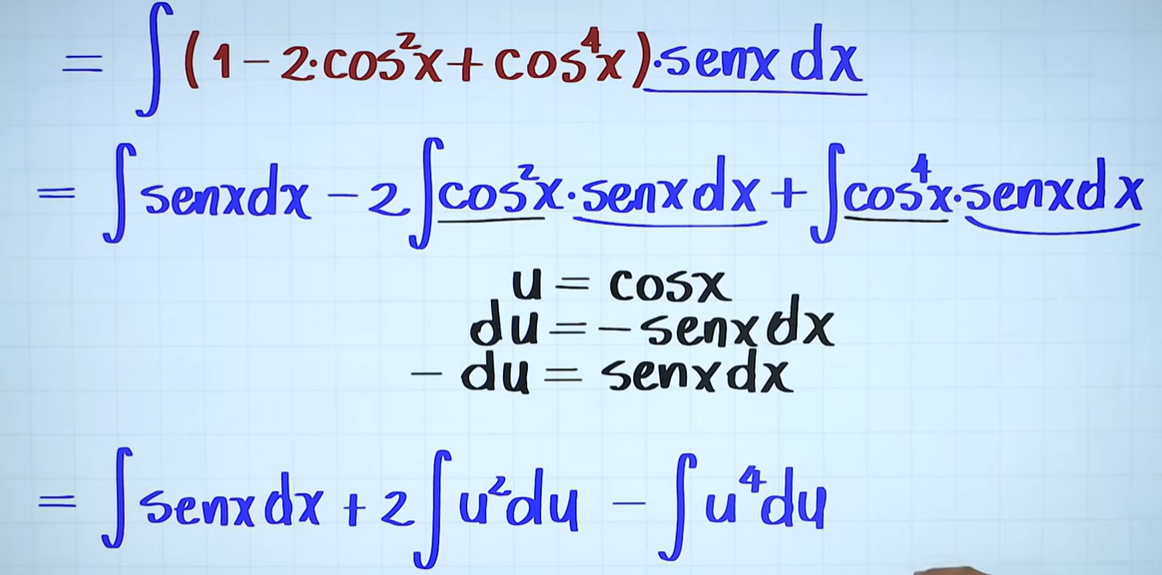 = ∫(1-2·cos²x+cos⁴x)·senx dx
= ∫senxdx - 2∫cos²x·senxdx + ∫cos⁴x·senxdx
u = cosx
du = -senxdx
- du = senxdx
= ∫senxdx + 2∫u²du - ∫u⁴du